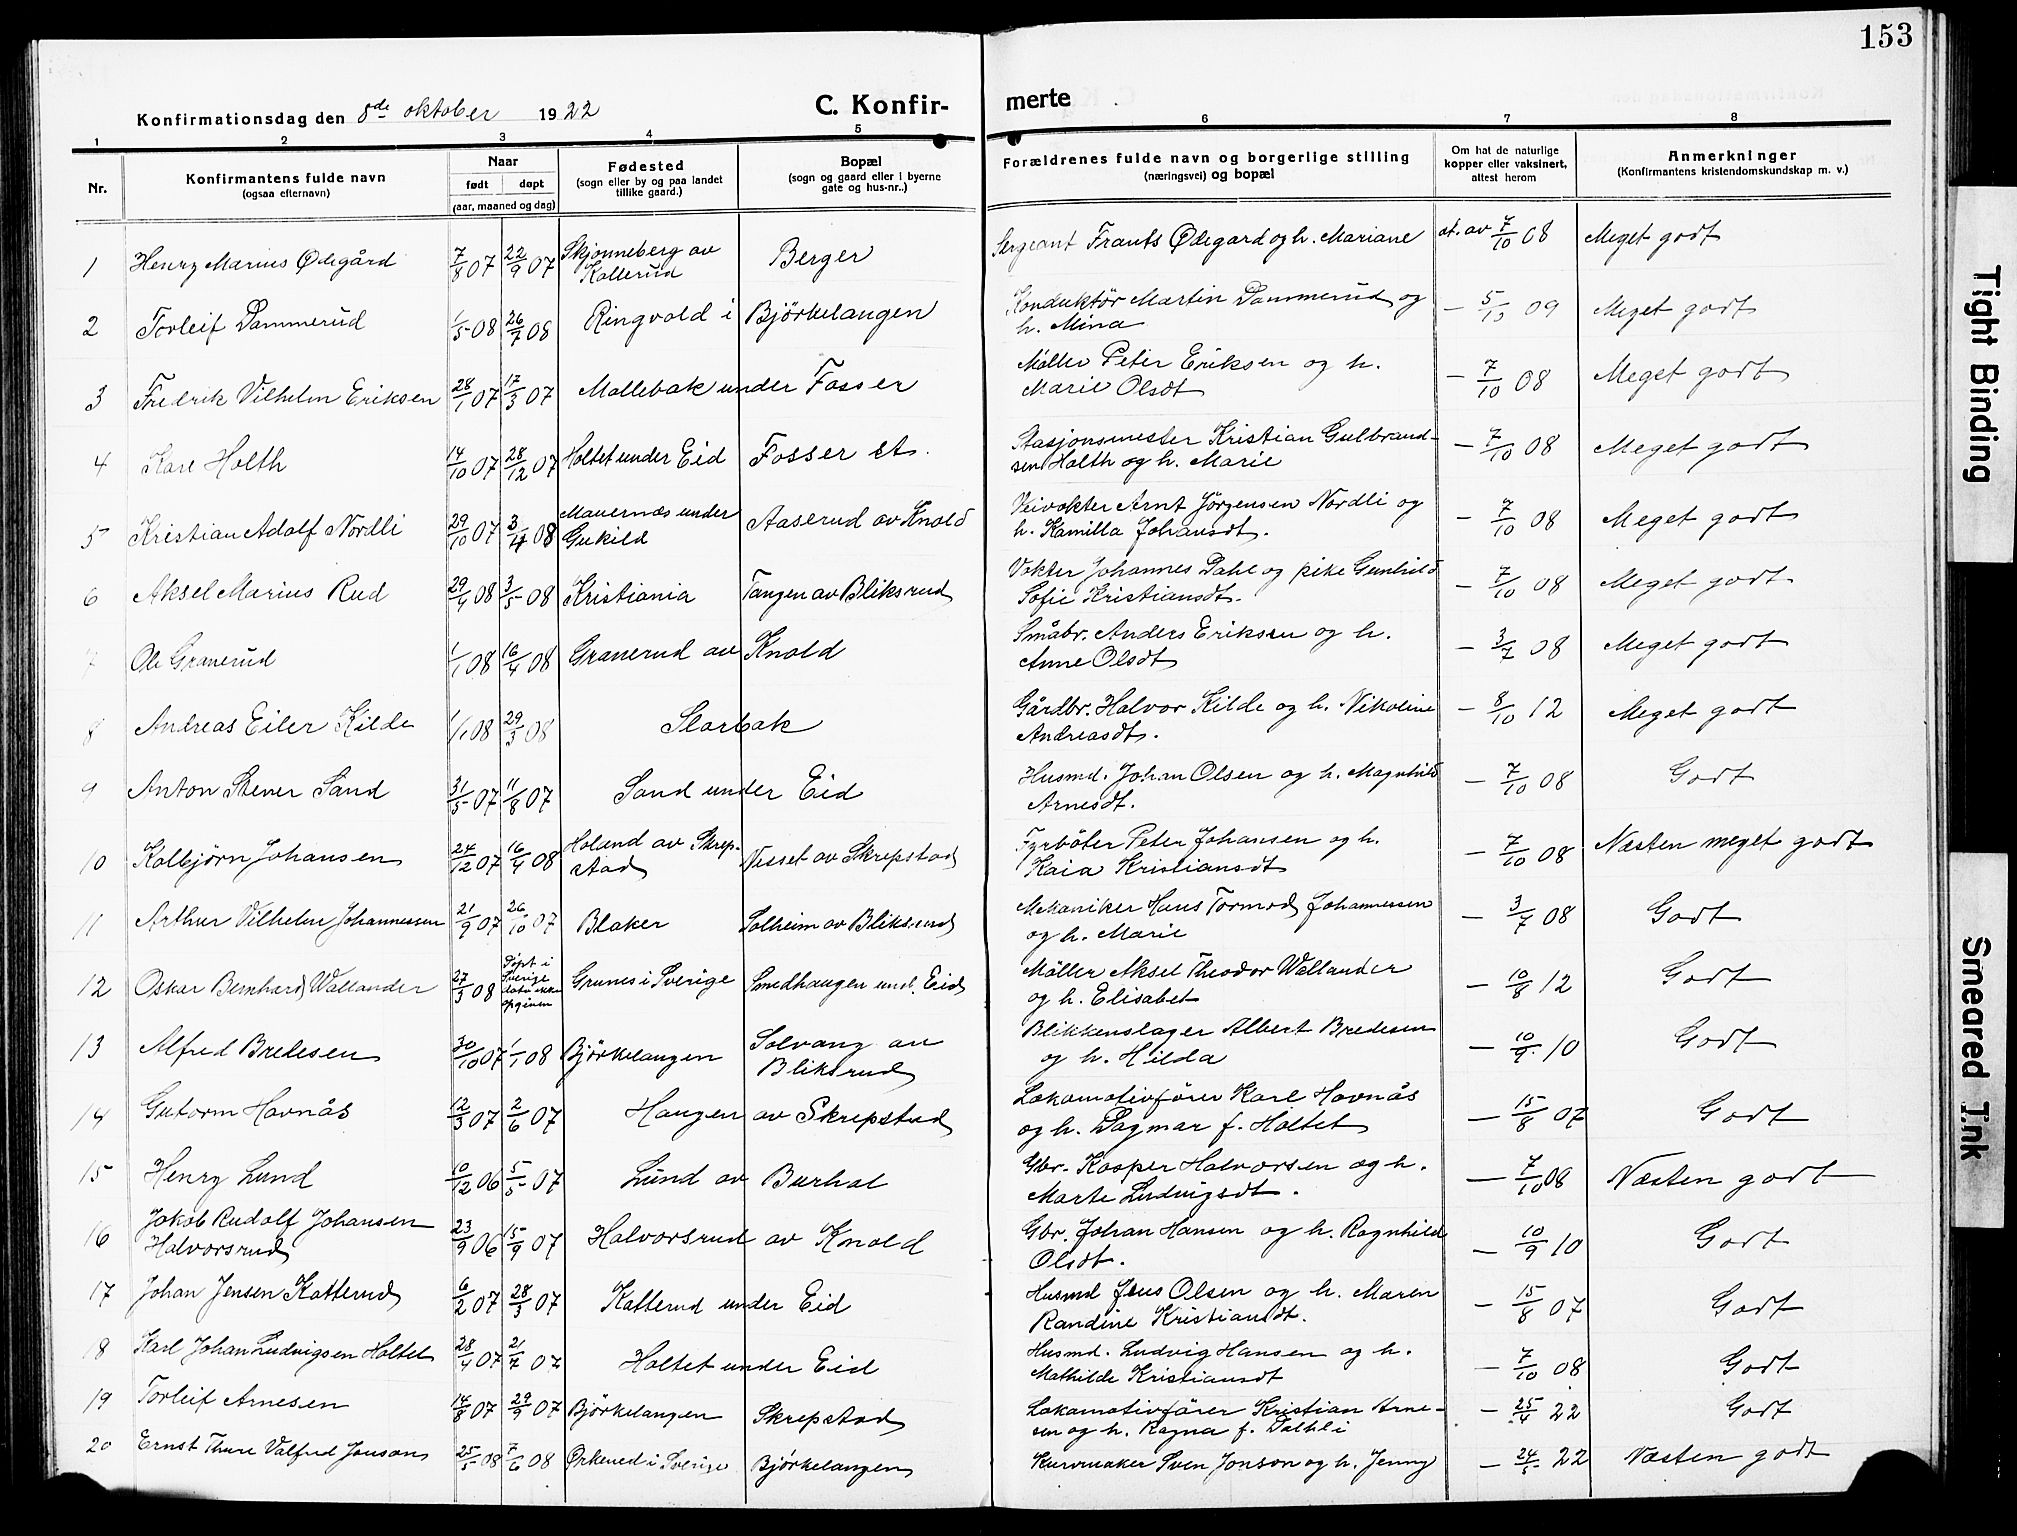 153
Konfirmationsdag den 8de oktober 1922
C. Konfir-
merte
1 2 3 4 5 6 7 8
Nr.
Konfirmantens fulde navn
(ogsaa efternavn)
Naar
født døpt
(aar, maaned og dag)
Fødested
(sogn eller by og paa landet
tillike gaard.)
Bopæl
(sogn og gaard eller i byerne
gate og hus-nr..)
Forældrenes fulde navn og borgerlige stilling
(næringsvei) og bopæl
Om hat de naturlige
kopper eller vaksinert,
attest herom
Anmerkninger
(Konfirmantens kristendomskundskap m. v.)
1 Henry Marius Ødegård 7/8 07 22/9 07 Skjønneberg av Kollerud Berger Sergeant Frants Ødegard og h. Mariane at. av 7/10 08 Meget godt
2 Torleif Dammerud 1/5 08 26/7 08 Ringvold i Bjørkelangen Konduktör Martin Dammerud og h. Mina – 5/10 09 Meget godt
3 Fredrik Vilhelm Eriksen 28/1 07 17/3 07 Mollebak under Fosser Møller Peter Eriksen og h. Marie Olsdt – 7/10 08 Meget godt
4 Kare Holth 14/10 07 28/12 07 Holtet under Eid Fosser st. Stasjonsmester Kristian Gulbrandsen Holth og h. Marie – 7/10 08 Meget godt
5 Kristian Adolf Nordli 29/10 07 3/4 08 Mauernæs under Gukild Aaserud av Knold Veivokter Arnt Jörgensen Nordli og h. Kamilla Johansdt. – 7/10 08 Meget godt
6 Aksel Marius Rud 29/4 08 3/5 08 Kristiania Tangen av Bliksrud Vokter Johannes Dahl og pike Gunhild Sofie Kristiansdt. – 7/10 08 Meget godt
7 Ole Granerud 1/1 08 16/4 08 Granerud av Knold Småbr. Anders Eriksen og h. Anne Olsdt – 3/7 08 Meget godt
8 Andreas Eiler Kilde 1/1 08 29/3 08 Slorbak Gårdbr. Halvor Kilde og h. Nikoline Andreasdt. – 8/10 12 Meget godt
9 Anton Stener Sand 31/5 07 11/8 07 Sand under Eid Husmd. Johan Olsen og h. Magnhild Arnesdt. – 7/10 08 Godt
10 Kolbjörn Johansen 24/12 07 16/4 08 Holund av Skrepstad Nesset av Skrepstad Fyrböter Peter Johansen og h. Kaia Kristiansdt – 7/10 08 Næsten meget godt
11 Arthur Vilhelm Johannessen 21/9 07 26/10 07 Blaker Solheim av Bliksrud Mekaniker Hans Tormod Johannessen og h. Marie – 3/7 08 Godt
12 Oskar Bernhard Wallander 27/3 08 Døpt i Sverige datu ikke opgiven Grunes i Sverige Smedhaugen und. Eid Møller Aksel Theodor Wallander og h. Elisabet – 10/8 12 Godt
13 Alfred Bredesen 30/10 07 1/1 08 Björkelangen Solvang av Bliksrud Blikkenslager Albert Bredesen og h. Hilda – 10/9 10 Godt
14 Gutorm Havnås 12/3 07 2/6 07 Haugen av Skrepstad Lokomotivfører Karl Havnås og h. Dagmar f. Holtet – 15/8 07 Godt
15 Henry Lund 10/12 06 5/5 07 Lund av Burhol Gbr. Kasper Halvorsen og h. Marte Ludvigsdt. – 7/10 08 Næsten godt
16 Jakob Rudolf Johansen Halvorsrud 23/9 06 15/9 07 Halvorsrud av Knold Gbr. Johan Hansen og h. Ragnhild Olsdt. – 10/9 10 Godt
17 Johan Jensen Katterud 6/2 07 28/3 07 Katterud under Eid Husmd Jens Olsen og h. Maren Randine Kristiansdt. – 15/8 07 Godt
18 Karl Johan Ludvigsen Holtet 28/4 07 21/7 07 Holtet under Eid Husmd. Ludvig Hansen og h. Mathilde Kristiansdt – 7/10 08 Godt
19 Torleif Arnesen 14/8 07 29/9 07 Björkelangen Skrepstad Lokomotivfører Kristian Arnesen og h. Ragna f. – 25/4 22 Godt
20 Ernst Thure Valfred Jonson 25/5 08 7/6 08 Ørkened i Sverige Bjørkelangen Kurvmaker Sven Jonson og h. Jenny – 24/5 22 Næsten godt
Tight Binding
Smeared Ink